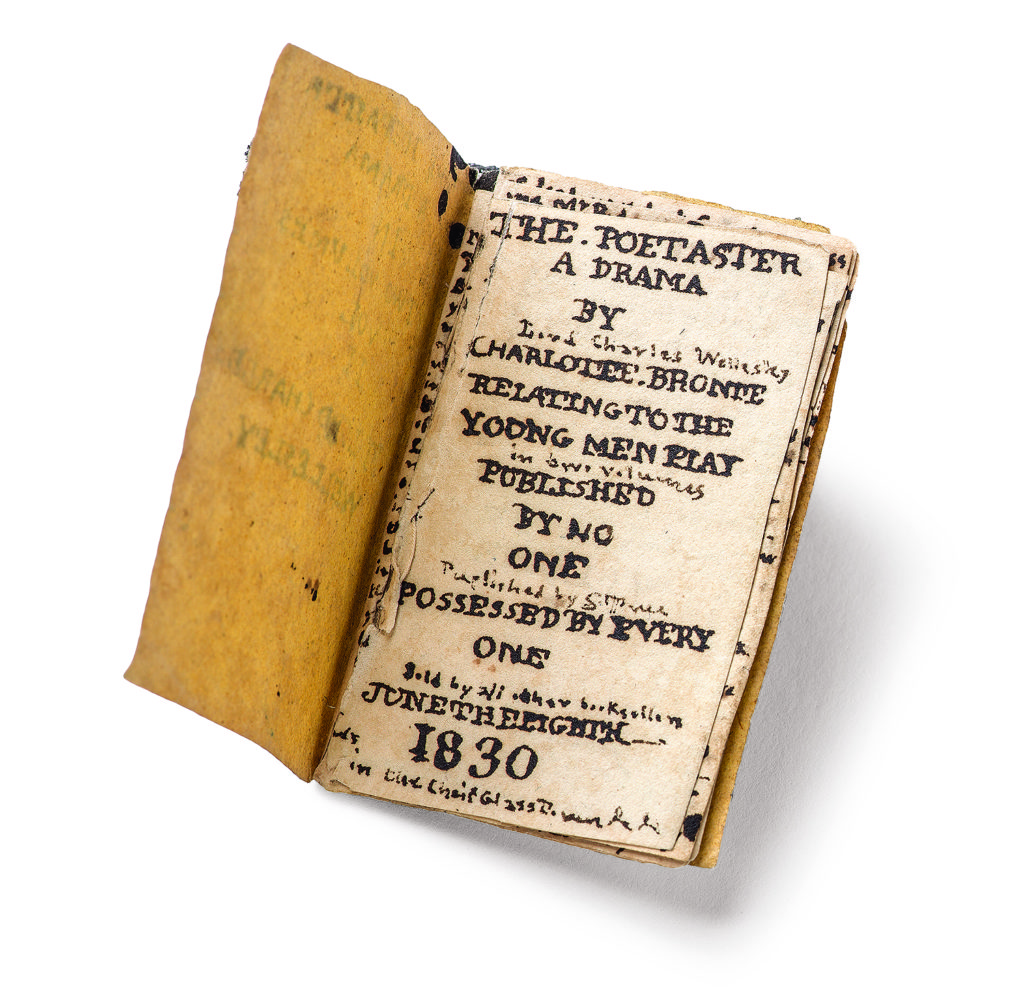 THE. POETASTER
A DRAMA
BY
Lord Charles Wellesley
CHARLOTTE. BRONTE
RELATING TO THE
YOUNG MEN PLAY
in two volumes
PUBLISHED
BY NO
ONE
Published by
POSSESSED BY EVERY
ONE
Sold by all other booksellers
JUNE THE EIGHTH
1830
in the Cheif Glass Town & &